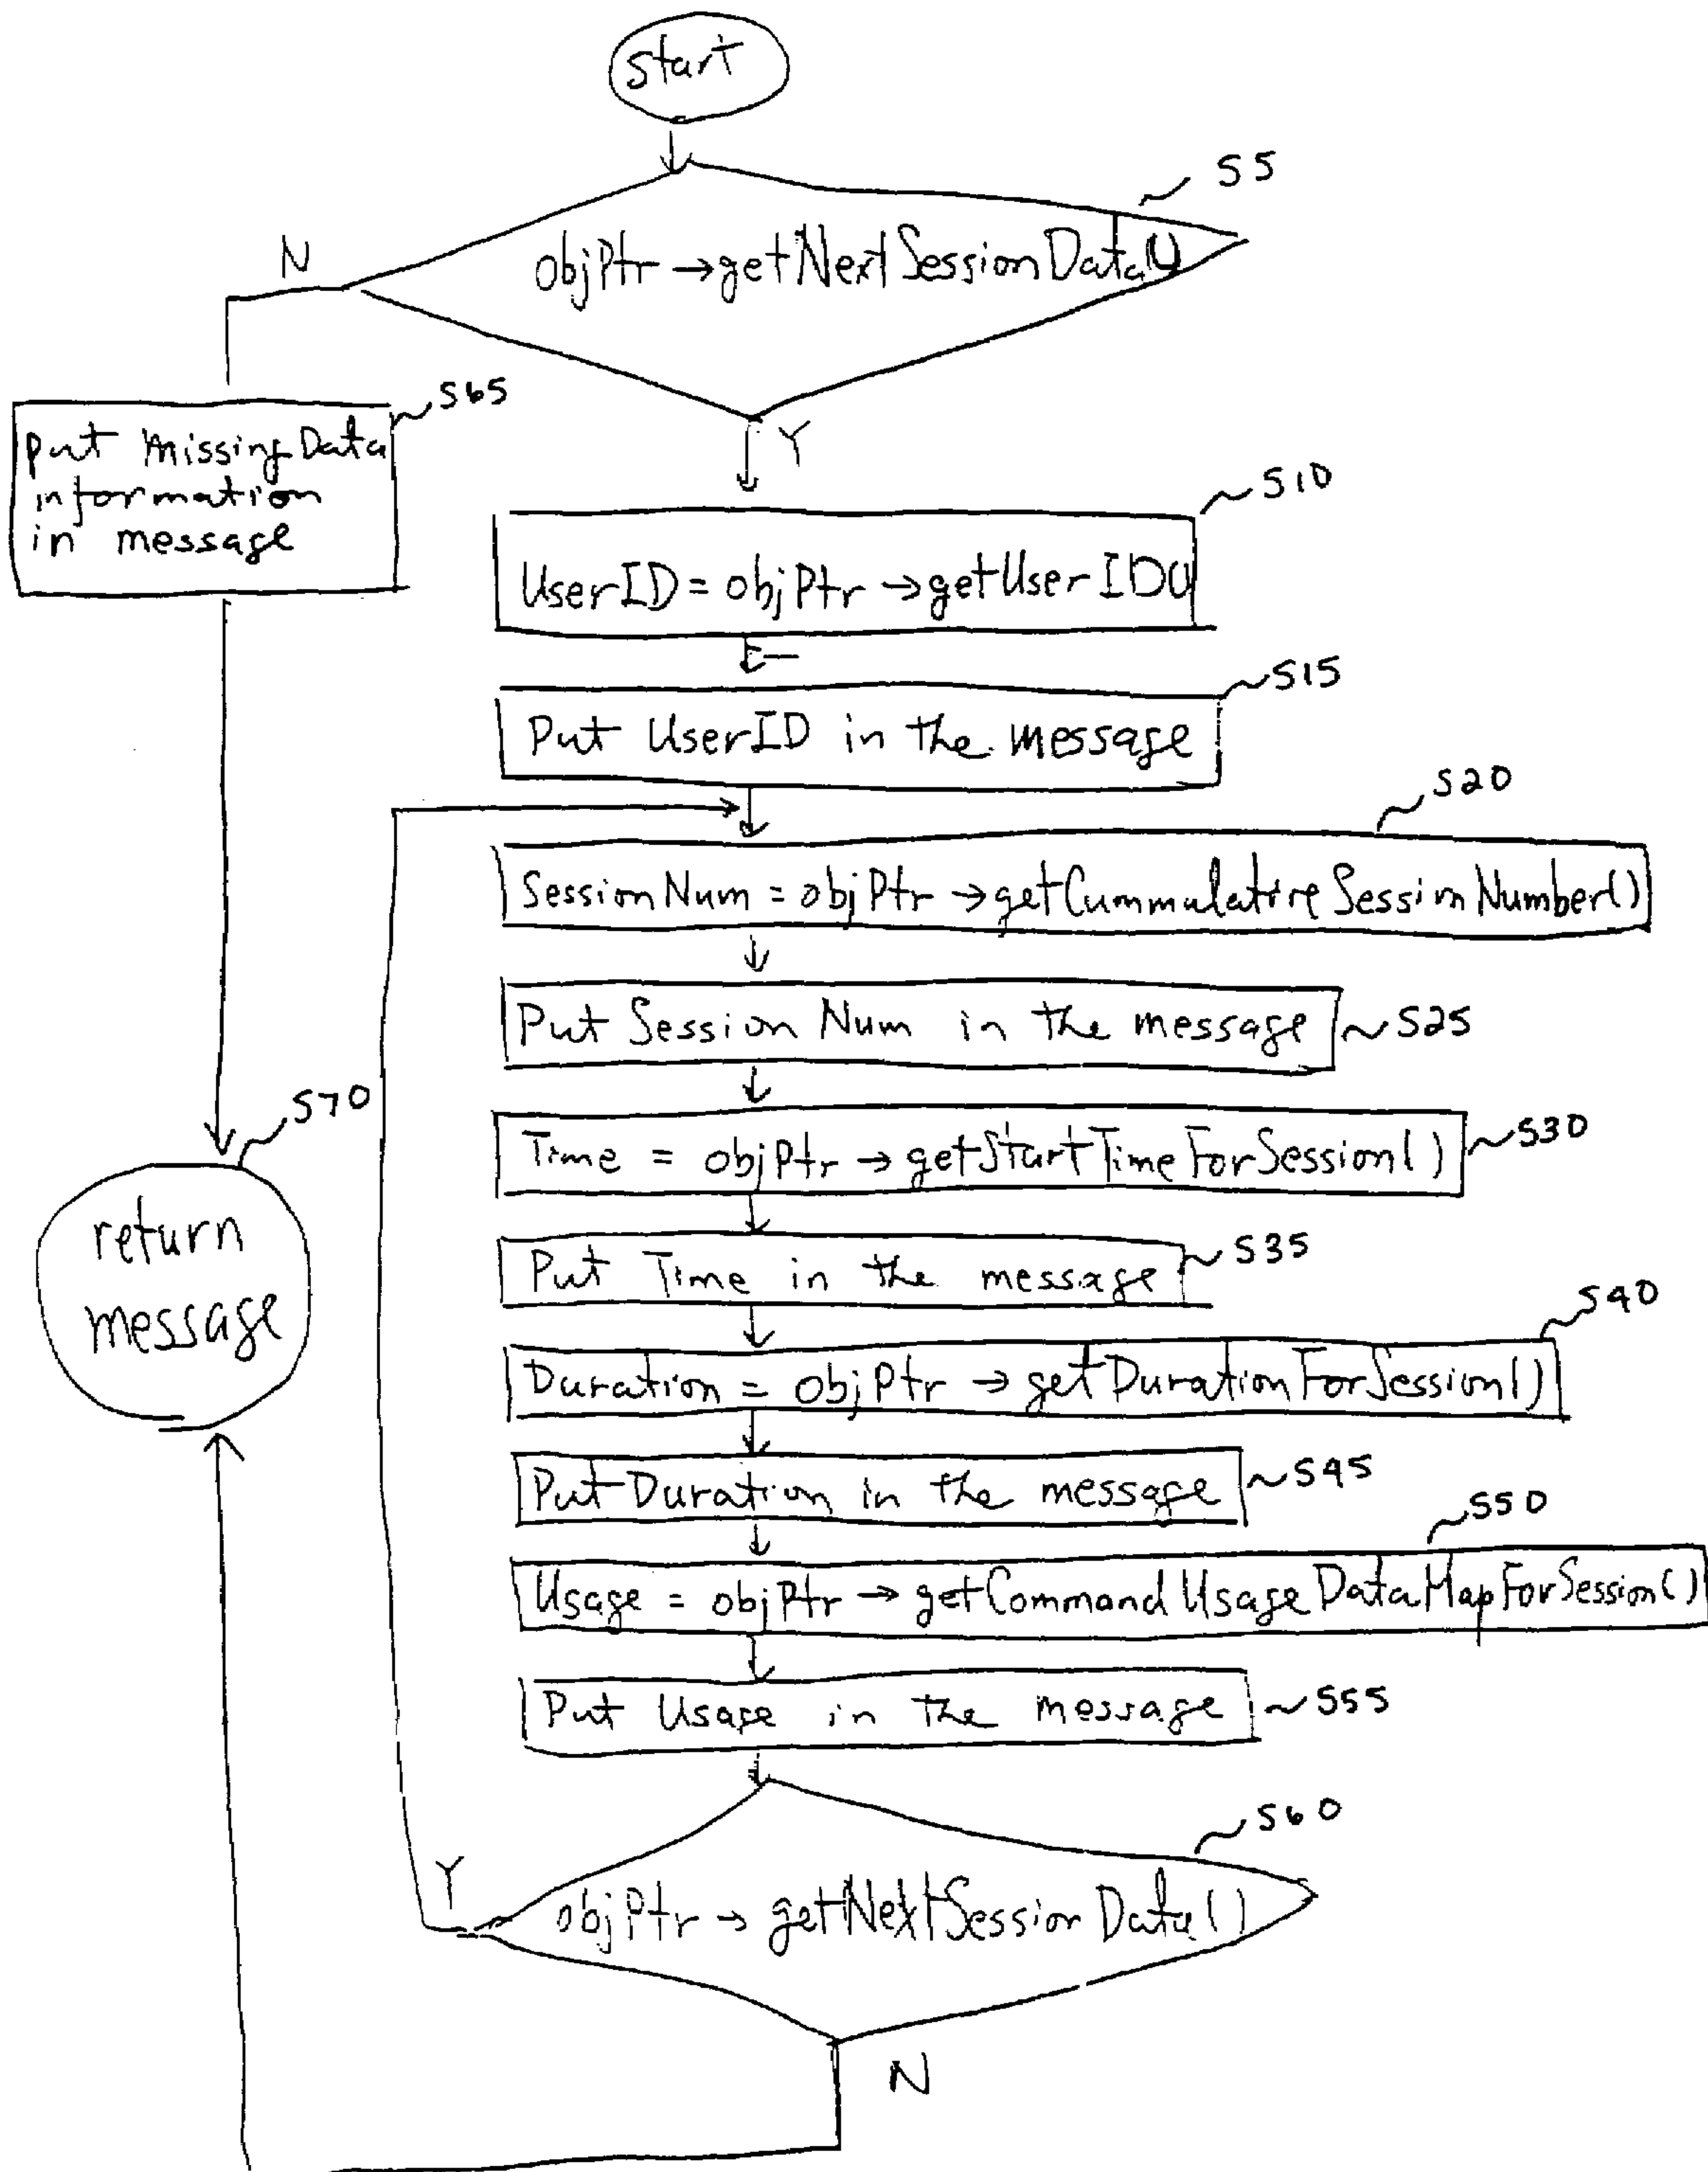 start
S5
N
objPtr →getNextSessionData()
S65
put missingData
information
in message
Y
S10
UserID = objPtr →getUserID()
S15
Put UserID in the message
S20
SessionNum = objPtr →getCummulativeSessionNumber()
Put Session Num in the message
S25
S70
Time = objPtr → getStartTimeForSession()
S30
return
message
Put Time in the message
S35
S40
Duration = objPtr → getDurationForSession()
Put Duration in the message
S45
S50
Usage = objPtr → getCommandUsageDataMapForSession()
Put Usage in the message
S55
S60
Y
objPtr → getNextSessionData()
N